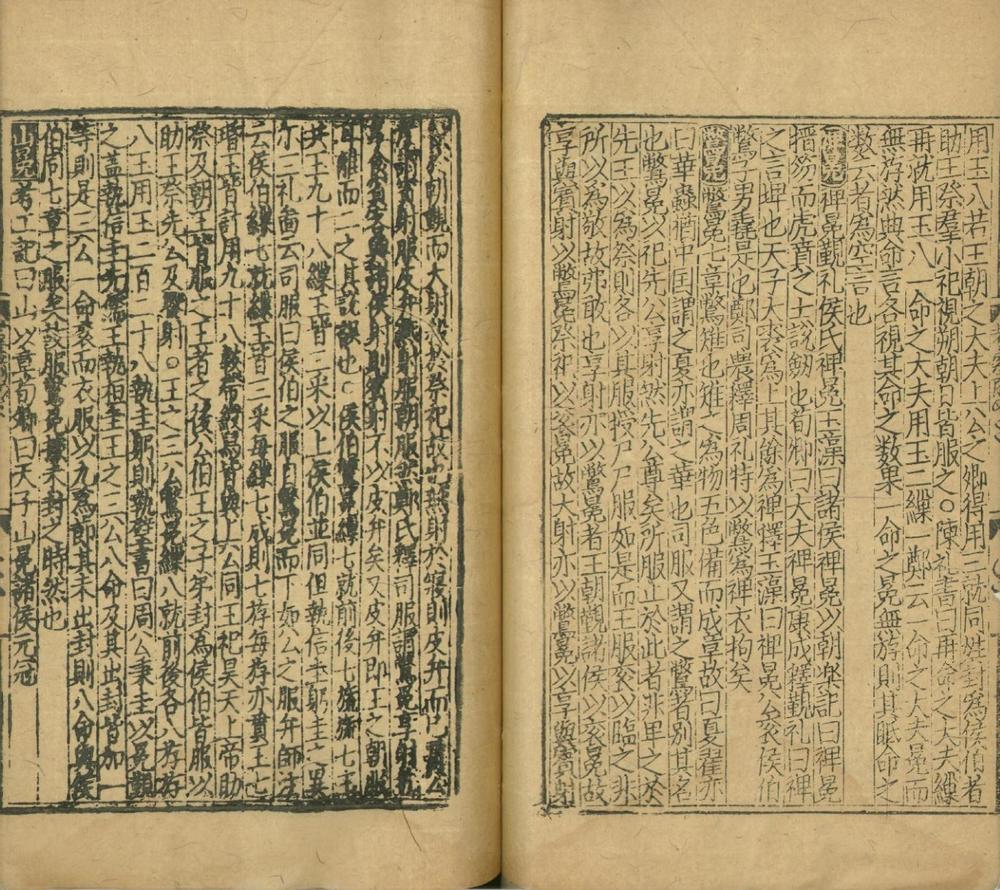 用玉八若王朝之大夫上六公之卿得用三就同姓封爲侯伯者
助王祭羣小祀視朔朝日皆服之○陳礼書曰再命之大夫繅
再就用玉八一命之大夫用玉二繅一鄭云一命之大夫冕而
無旒然典命言各視其命之数果一命之冕無旒則其眡命之
数六者爲空言也
裨冕 裨冕覲礼侯氏裨冕玉藻曰諸侯裨冕以朝樂記曰裨冕
搢笏而虎賁之士說劔也荀卿曰大夫裨冕康成釋覲礼曰裨
之言埤也天子大裘爲上其餘爲裨釋玉藻曰裨冕公衮侯伯
鷩子男毳是也鄭司農釋周礼特以鷩爲裨衣拘矣
鷩冕 鷩冕七章鷩雉也雉之爲物五色備而成章故曰夏翟亦
曰華蟲猶中国謂之夏亦謂之華也司服又謂之鷩者别其名
也鷩冕以祀先公享射然先公尊矣所服止於此者非卑之於
先王以爲祭則各以其服授尸尸服如是而王服衮以臨之非
所以爲敬故弗敢也享射亦以鷩冕者王朝覲諸侯以衮冕故
享與賓射以鷩冕祭祀以衮冕故大射亦以鷩冕以享與賓射
於朝覲而大射於祭祀故也燕射於寢則皮弁而已
賓射服皮弁燕射服朝服然鄭氏釋司服謂鷩冕享射
諸侯射則賓射不以皮弁矣又皮弁即王之朝服
耳離而二之其說誤也○侯伯鷩冕繅七就前後七旒旒七玉
共玉九十八繅玉皆三采以上侯伯並同但執信圭躬圭之異
尔三礼圖云司服曰侯伯之服自鷩冕而下如公之服弁師注
云侯伯繅七就繅玉皆三采每繅七成則七旒每旒亦貫玉七
㬱皆計用九十八韍帶綬舄皆與上公同王祀昊天上帝助
祭及朝王皆服之王者之後公伯王之子弟封爲侯伯皆服以
助王祭先公及饗射○王之三公鷩冕繅八就前後各八旒旒
八玉用玉二百二十八執圭躬則執璧書曰周公秉圭以冕觀
之蓋執信圭先儒王執桓圭王之三公八命及其出封皆加一
等則是三公一命衮而衣服以九爲節其未出封則八命與侯
伯同七章之服矣故服鷩冕據未封之時然也
山冕 考工記曰山以章荀卿曰天子山冕諸侯元冠